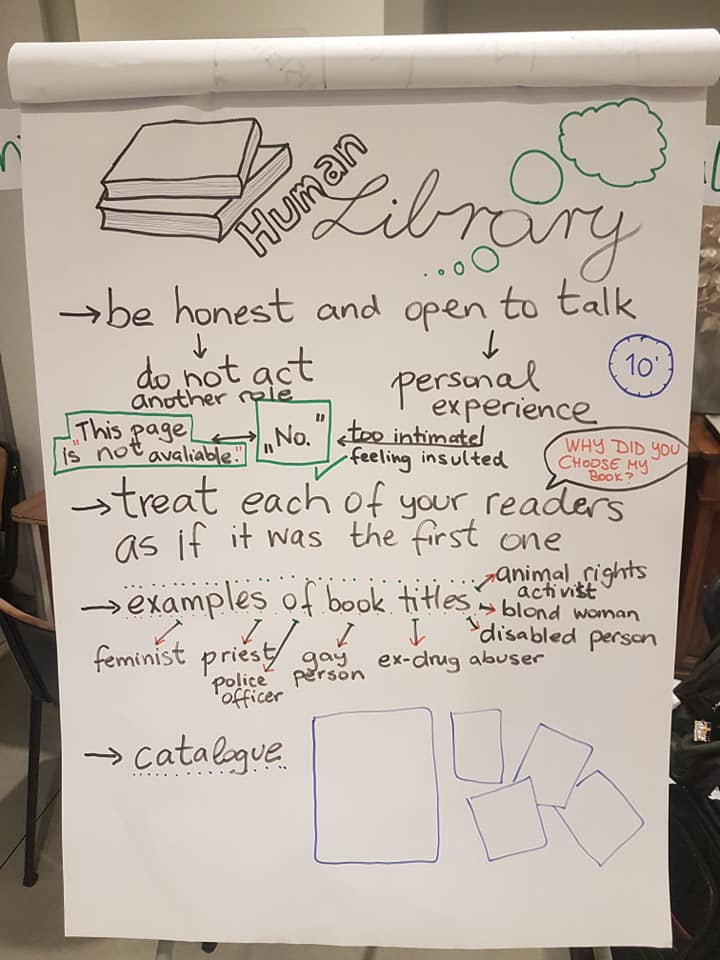 Human
Library
→ be honest and open to talk
↓ ↓
do not act
another role
personal
experience
10'
"This page
is not avaliable."
↔
„No."
← too intimate!
feeling insulted
WHY DID YOU
CHOOSE MY
BOOK?
→ treat each of your readers
as if it was the first one
→ examples of book titles
animal rights
activist
blond woman
disabled person
feminist
priest
police
officer
gay
person
ex-drug abuser
→ catalogue